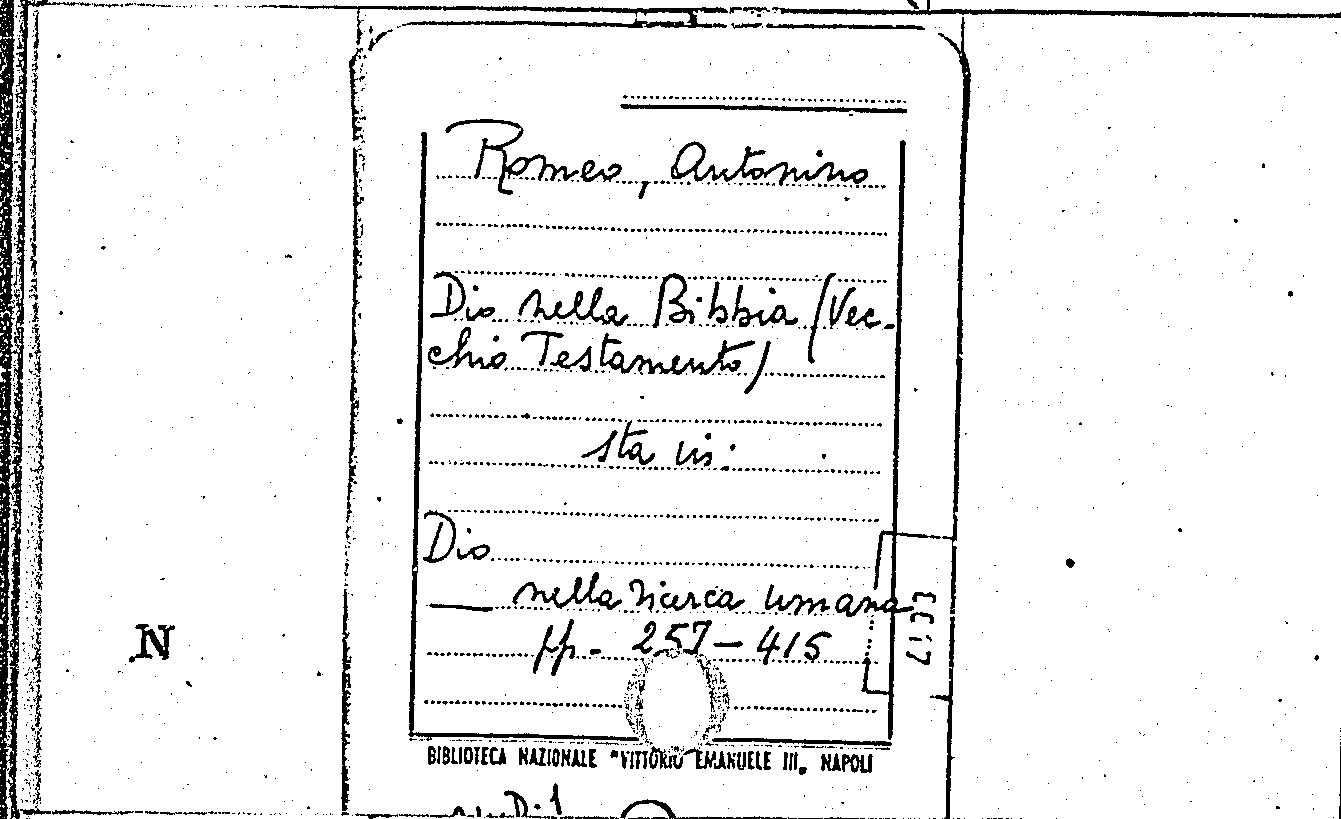 Romeo, Antonino
Dio nella Bibbia (Vec-
chio Testamento)
sta in:
Dio
nella ricerca umana
pp. 257-415
N
BIBLIOTECA NAZIONALE "VITTORIO EMANUELE III. NAPOLI